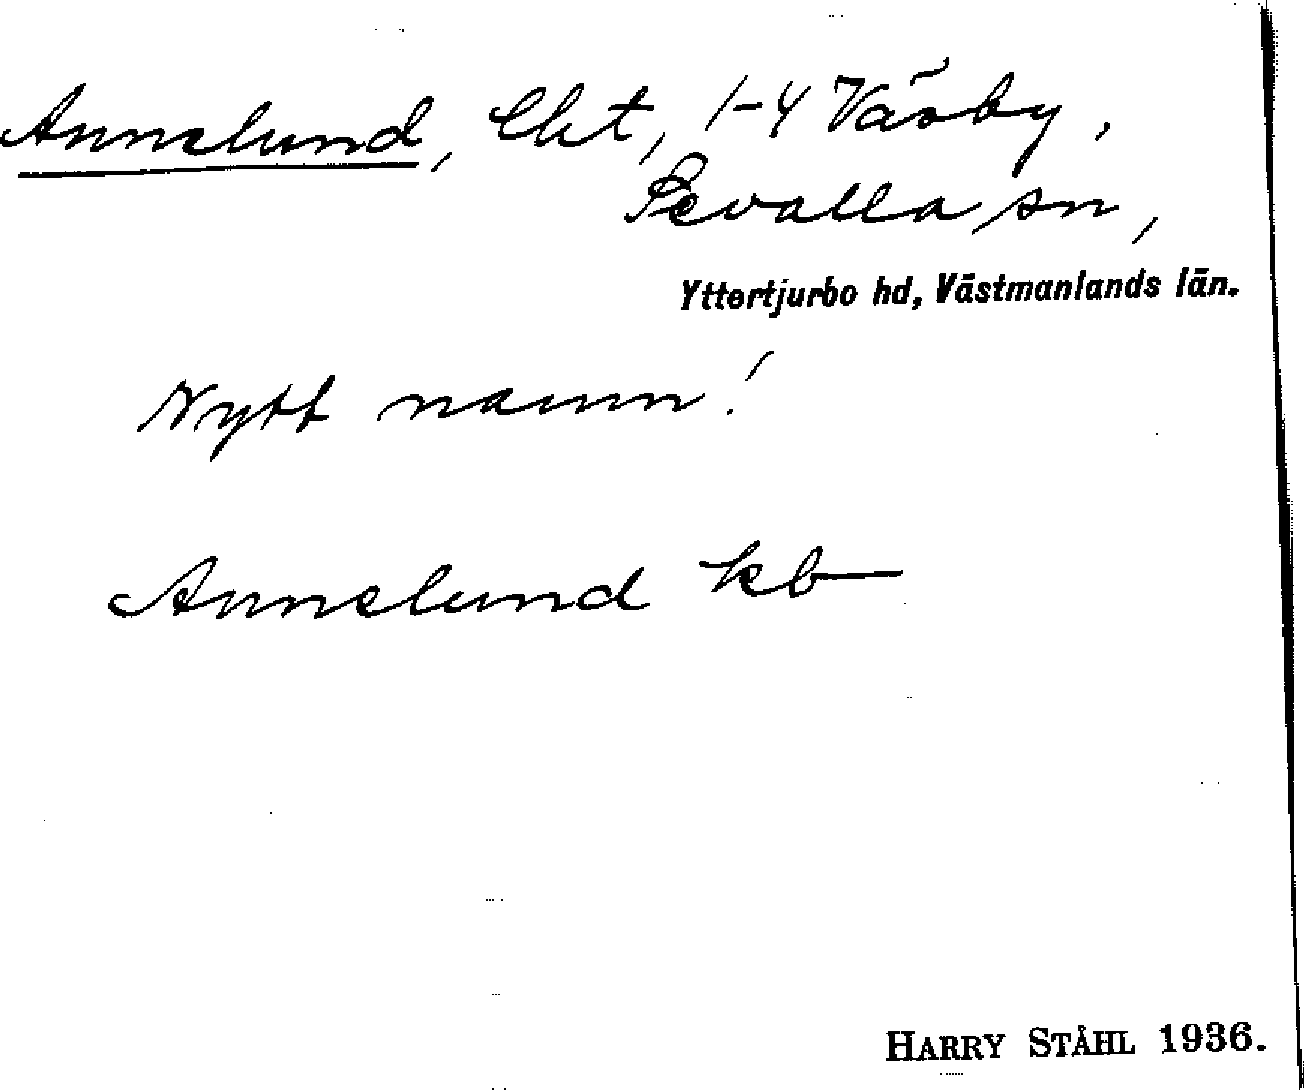 Annelund, lht, 1-4 Väsby,
Revalla sn,
Yttertjurbo hd, Västmanlands län.
Nytt namn!
Annelund kb
HARRY STÅHL 1936.